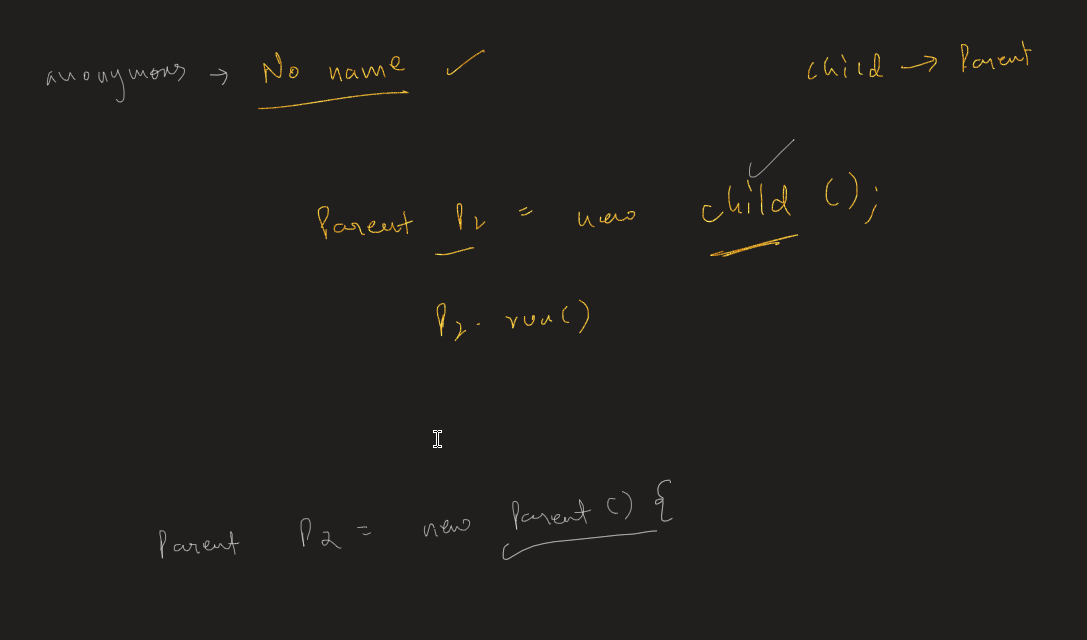 anonymous → No name ✓
child → Parent
Parent P2 = new child ();
P2. run()
Parent P2 = new Parent () {